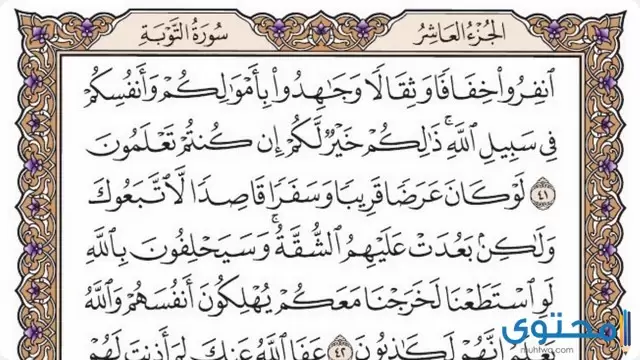 الجزء العاشر
سورة التوبة
ٱنفِرُوا۟ خِفَافًا وَثِقَالًا وَجَٰهِدُوا۟ بِأَمْوَٰلِكُمْ وَأَنفُسِكُمْ
فِى سَبِيلِ ٱللَّهِ ۚ ذَٰلِكُمْ خَيْرٌ لَّكُمْ إِن كُنتُمْ تَعْلَمُونَ
٤١ لَوْ كَانَ عَرَضًا قَرِيبًا وَسَفَرًا قَاصِدًا لَّٱتَّبَعُوكَ
وَلَٰكِنۢ بَعُدَتْ عَلَيْهِمُ ٱلشُّقَّةُ ۚ وَسَيَحْلِفُونَ بِٱللَّهِ
لَوِ ٱسْتَطَعْنَا لَخَرَجْنَا مَعَكُمْ يُهْلِكُونَ أَنفُسَهُمْ وَٱللَّهُ
إِنَّهُمْ لَكَٰذِبُونَ ٤٢ عَفَا ٱللَّهُ عَنكَ لِمَ أَذِنتَ لَهُمْ
محتوى
muhtwa.com